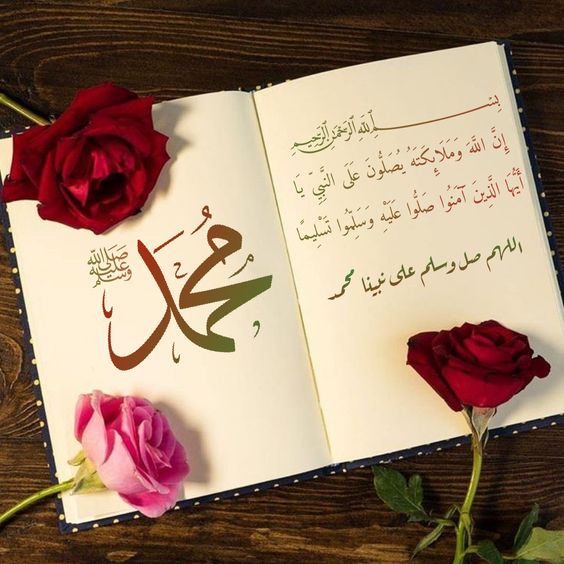 بِسْمِ ٱللَّهِ ٱلرَّحْمَٰنِ ٱلرَّحِيمِ
إِنَّ اللَّهَ وَمَلَائِكَتَهُ يُصَلُّونَ عَلَى النَّبِيِّ يَا
أَيُّهَا الَّذِينَ آمَنُوا صَلُّوا عَلَيْهِ وَسَلِّمُوا تَسْلِيمًا
اللهم صل وسلم على نبينا محمد
مُحَمَّد
صلى الله عليه وسلم